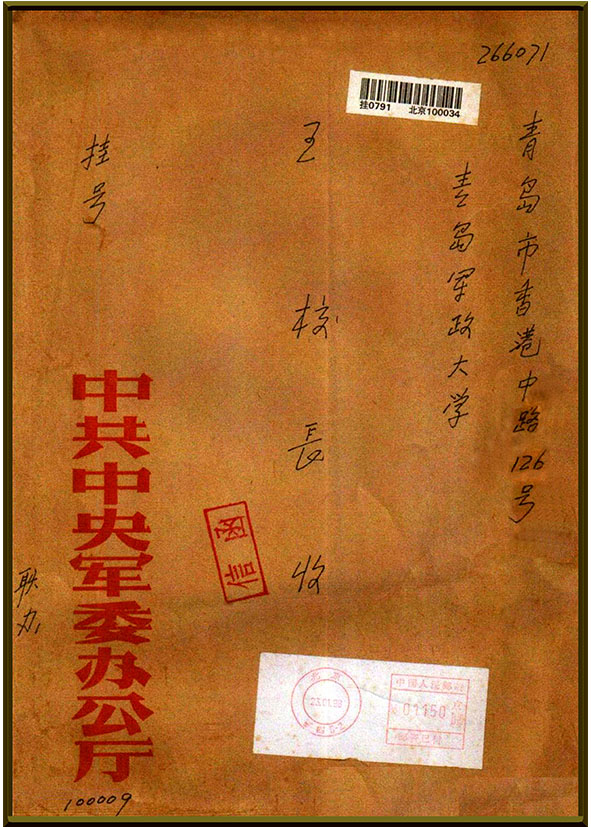 266071
挂0791 北京100034
青岛市香港中路126号
青岛军政大学
王校長收
挂号
信函
中共中央军委办公厅
联办
100009
北京
中国人民邮政
01150